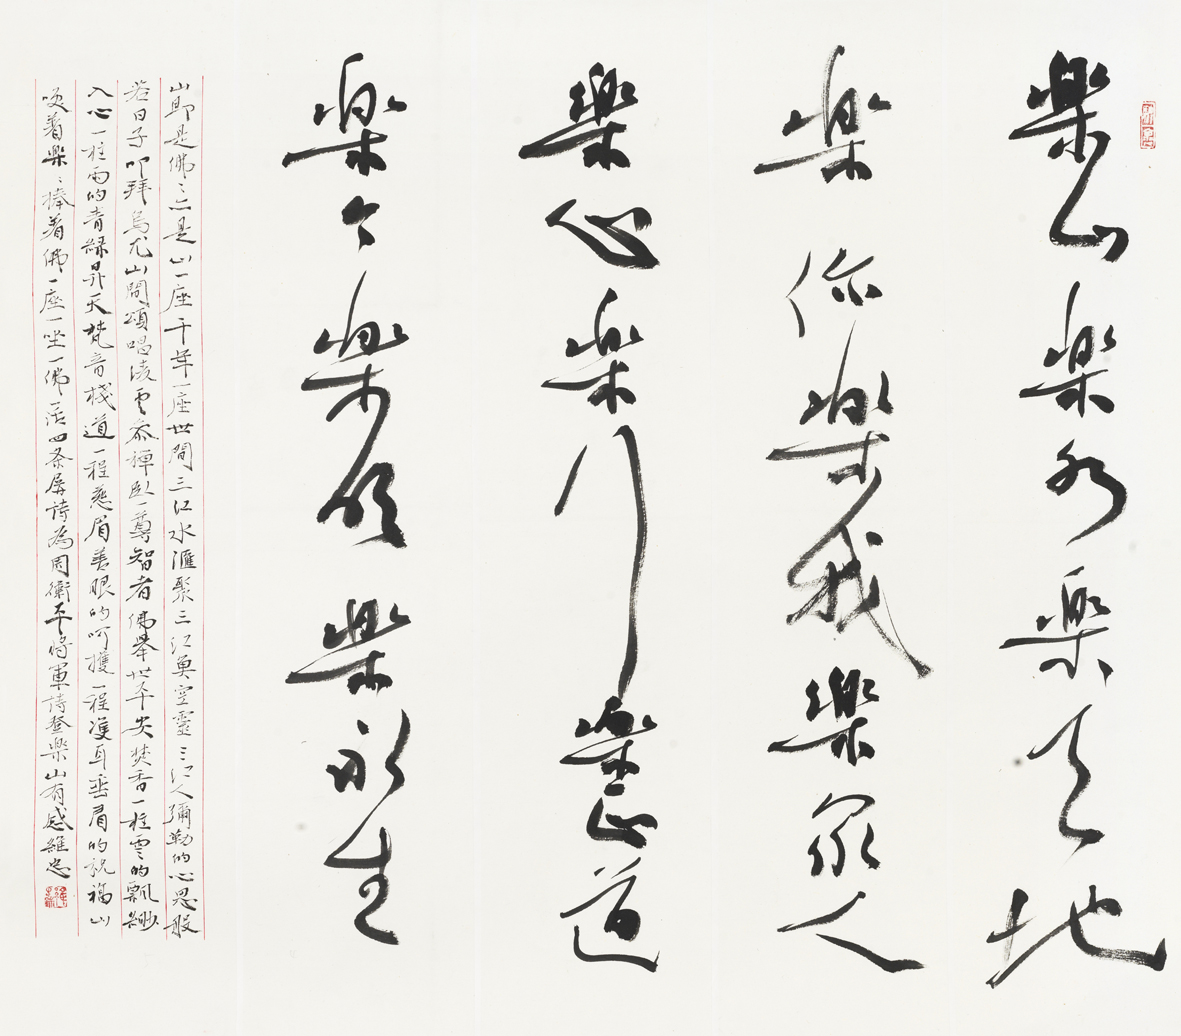 樂山樂水樂天地
樂你樂我樂眾人
樂心樂行樂正道
樂今樂欣樂永生
山即是佛佛亦是山一座千年一座世間三江水滙聚三江奠空靈三江人彌勒的心思般
若日子叩拜烏尤山間頌唱凌雲 禪臥一尊智者佛舉世平安焚香一柱雲的飄緲
入心一柱雨的青綠昇天梵音棧道一程慈眉善眼的呵護一程雙耳垂肩的祝福山
喚着樂樂捧着佛一座一坐一佛一活四条屏詩為周衛平將軍詩登樂山有感維忠